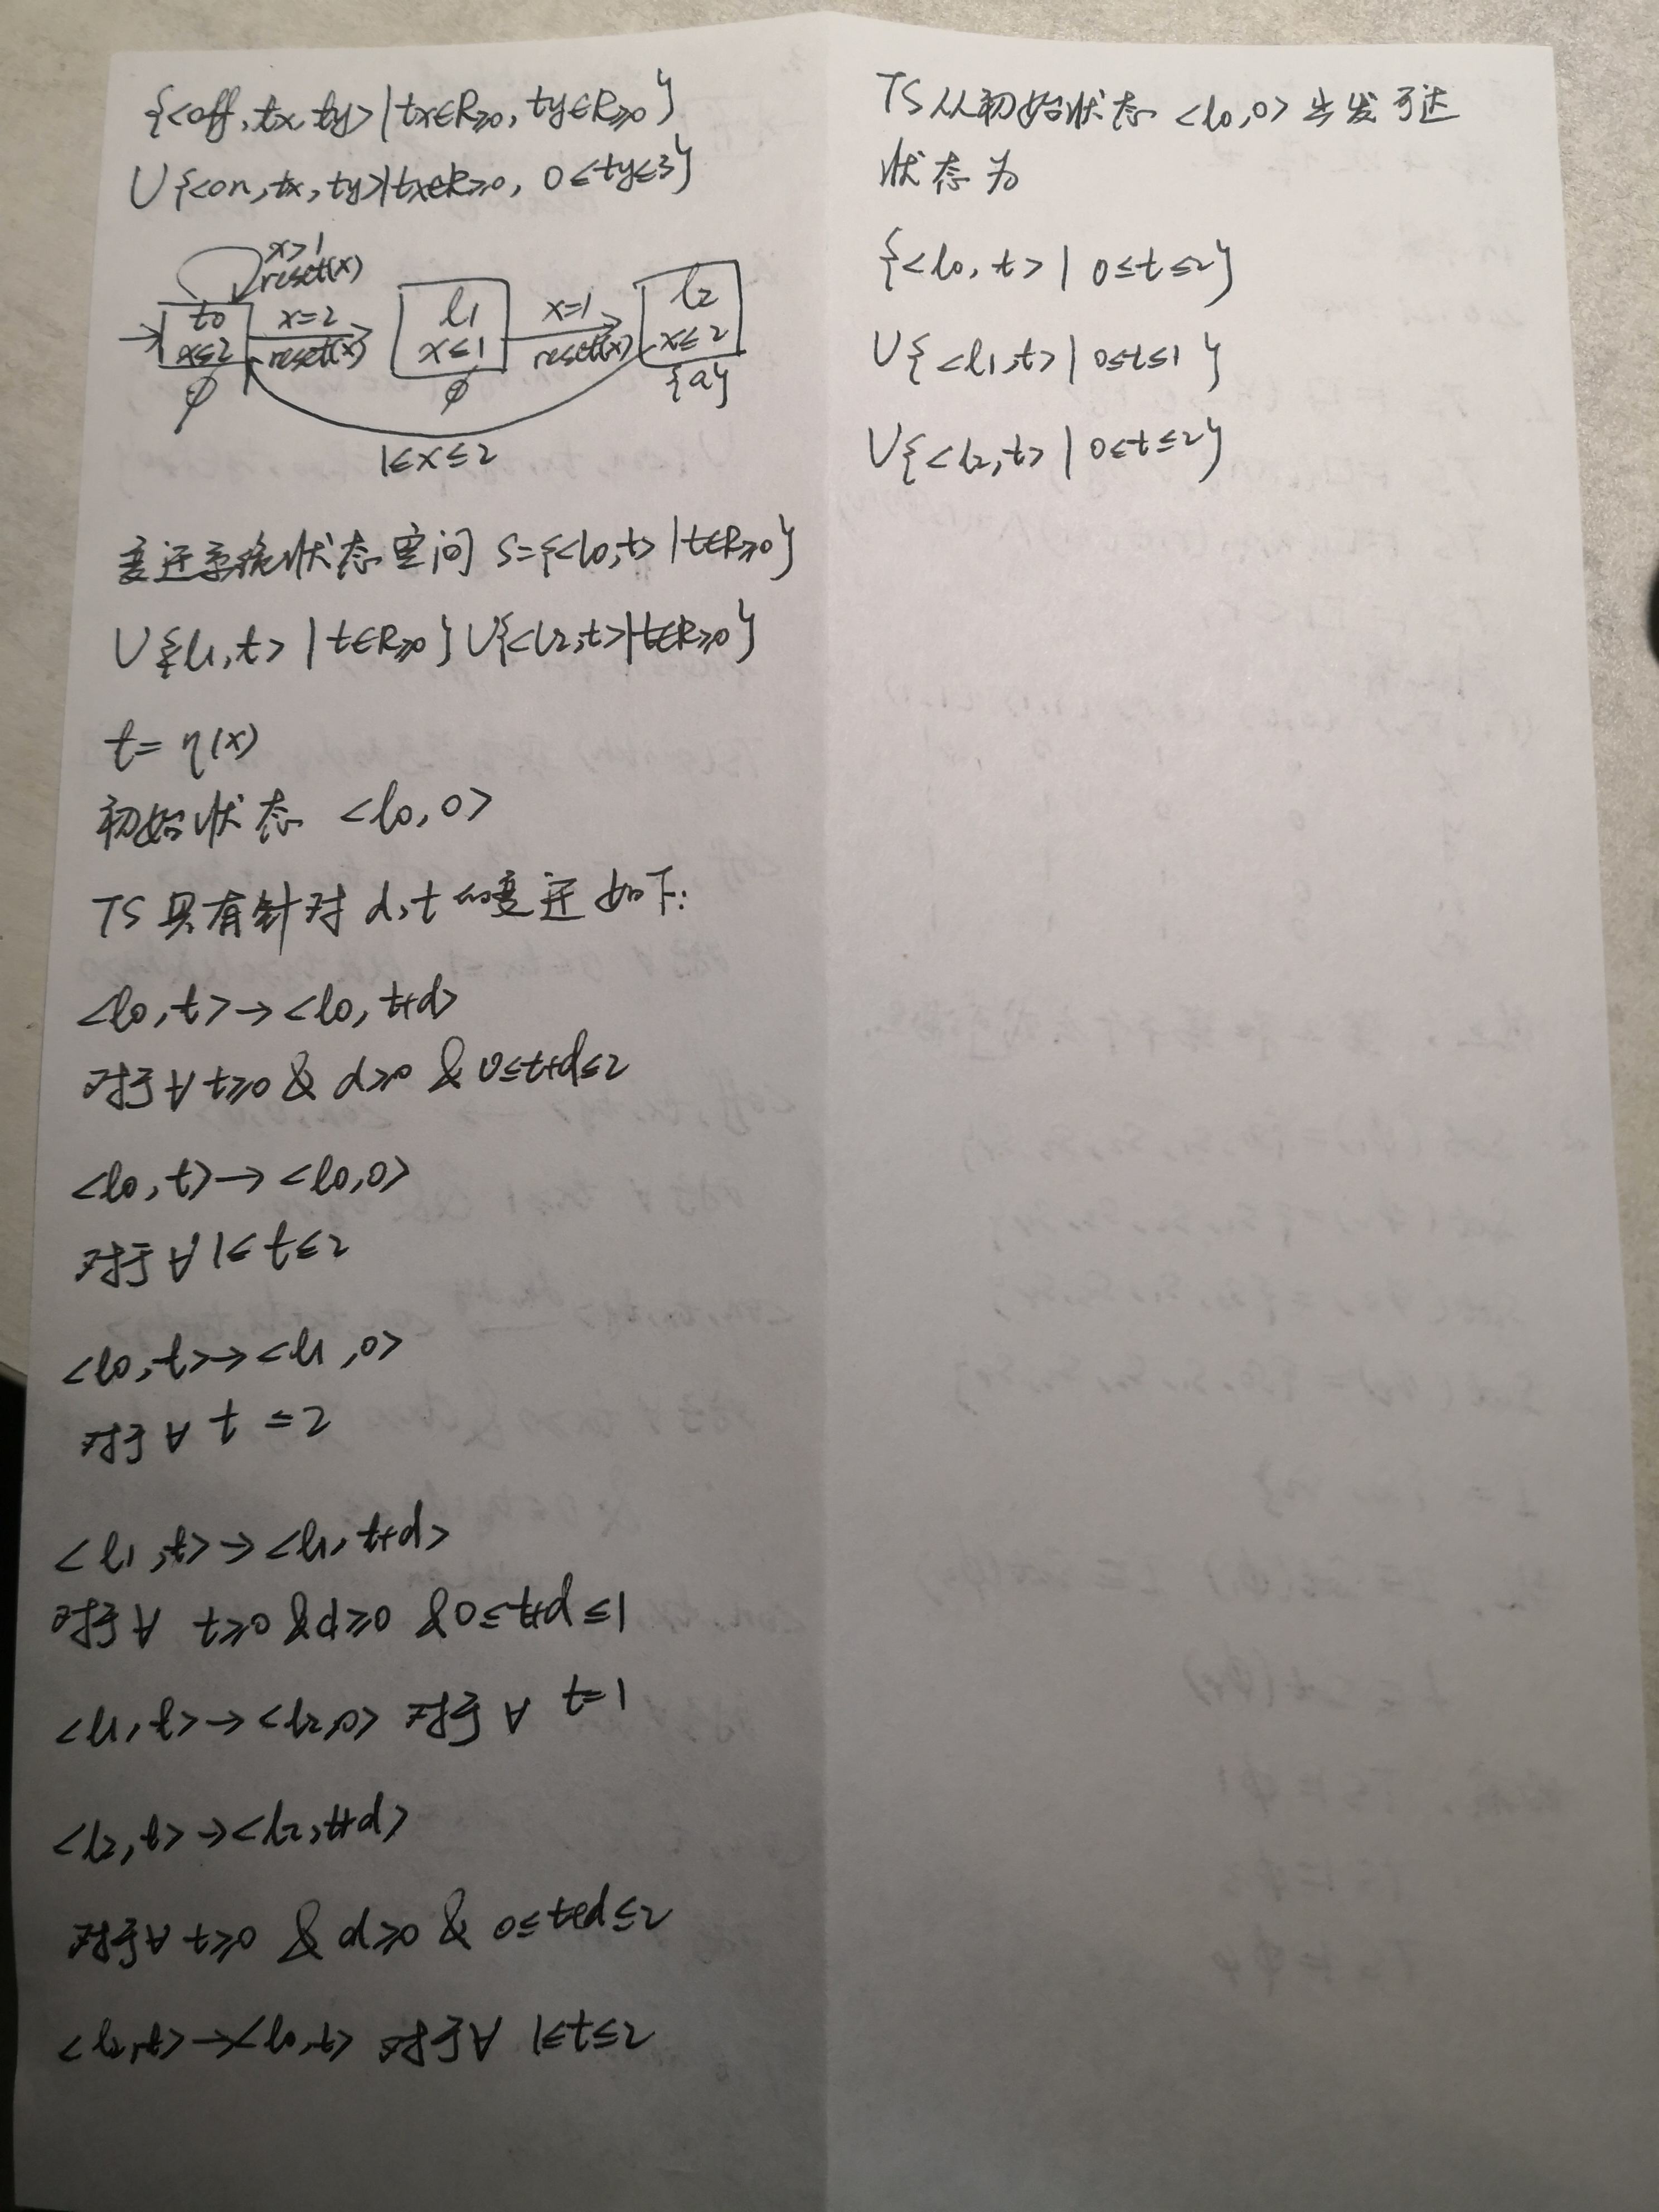 {<off, tx, ty> | tx∈R≥0, ty∈R≥0}
∪{<on, tx, ty> | tx∈R≥0, 0≤ty≤3}
x>1
reset(x)
l0
x≤2
∅
x=2
reset(x)
l1
x≤1
∅
x=1
reset(x)
l2
x≤2
{a}
1≤x≤2
变迁系统状态空间 S={<l0,t> | t∈R≥0}
∪{l1,t> | t∈R≥0}∪{<l2,t>|t∈R≥0}
t=η(x)
初始状态 <l0,0>
TS具有针对 d,t 的变迁如下:
<l0,t>→<l0,t+d>
对于∀ t≥0 & d≥0 & 0≤t+d≤2
<l0,t>→<l0,0>
对于∀ 1≤t≤2
<l0,t>→<l1,0>
对于∀ t=2
<l1,t>→<l1,t+d>
对于∀ t≥0 & d≥0 & 0≤t+d≤1
<l1,t>→<l2,0> 对于∀ t=1
<l2,t>→<l2,t+d>
对于∀ t≥0 & d≥0 & 0≤t+d≤2
<l2,t>→<l0,t> 对于∀ 1≤t≤2
TS从初始状态 <l0,0> 出发可达
状态为
{<l0,t> | 0≤t≤2}
∪{<l1,t> | 0≤t≤1}
∪{<l2,t> | 0≤t≤2}